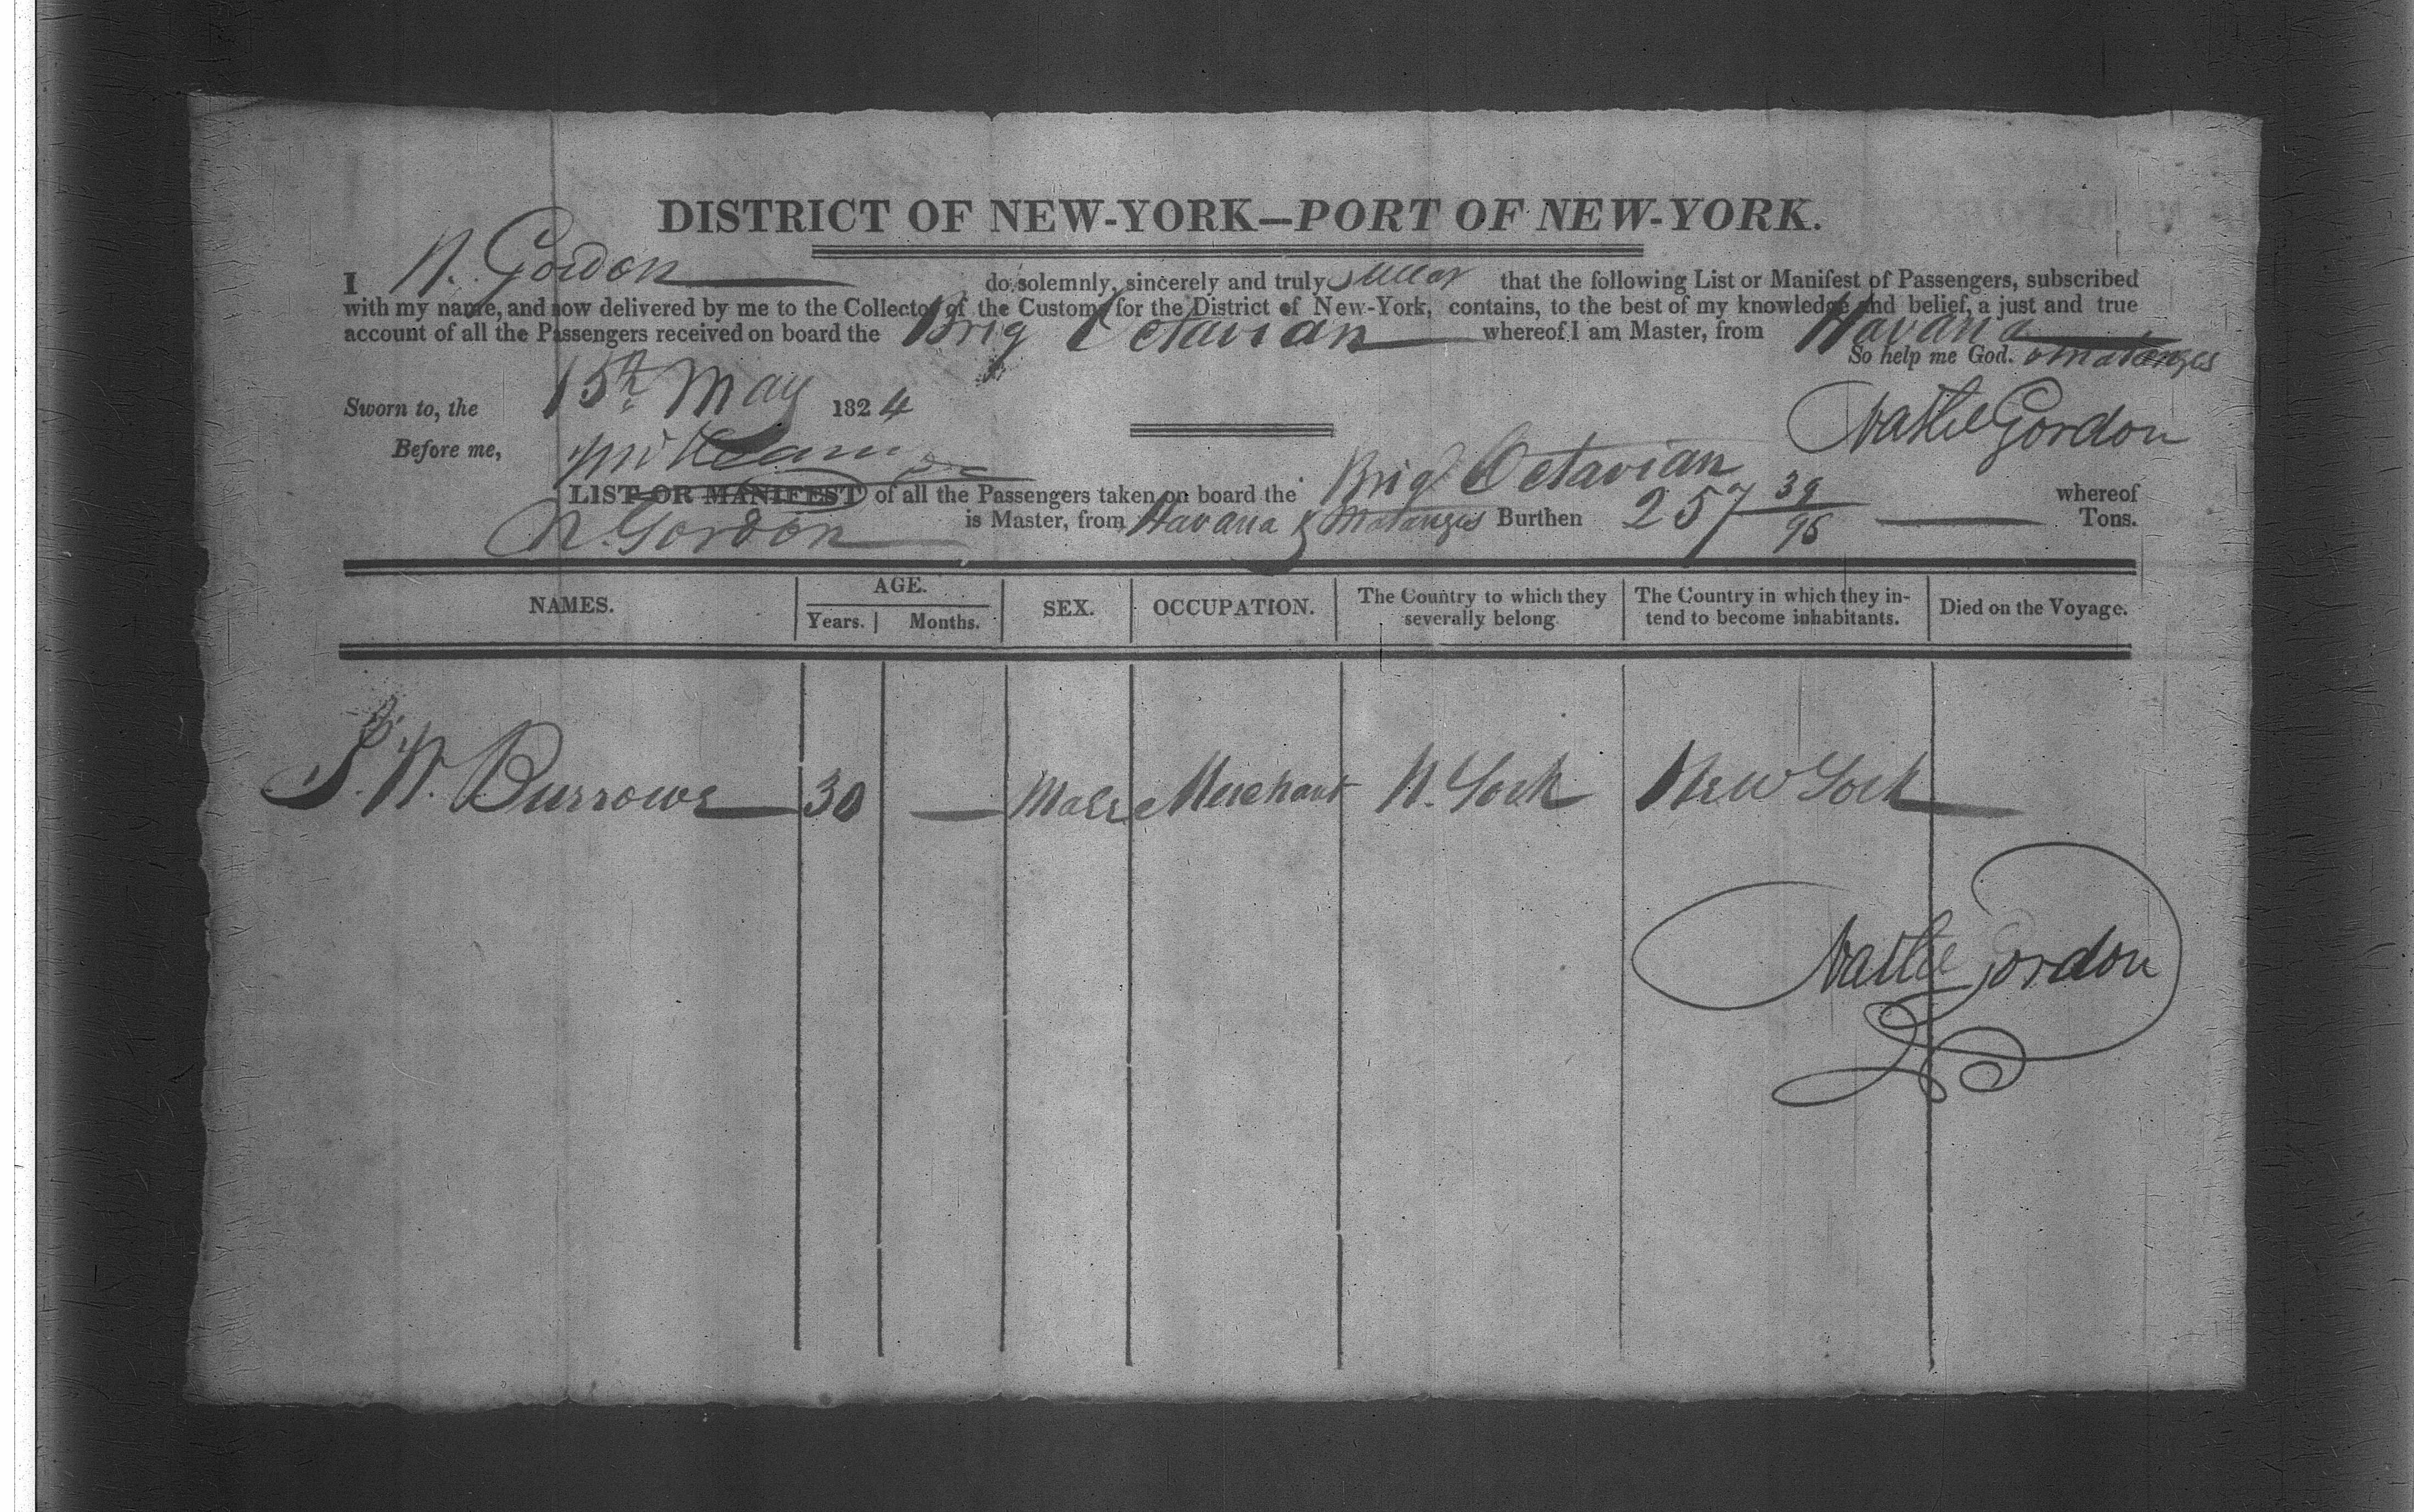 DISTRICT OF NEW-YORK—PORT OF NEW-YORK.
I N. Gordon do solemnly, sincerely and truly swear that the following List or Manifest of Passengers, subscribed
with my name, and now delivered by me to the Collector of the Customs for the District of New-York, contains, to the best of my knowledge and belief, a just and true
account of all the Passengers received on board the Brig Octavian whereof I am Master, from Havana
So help me God. & Matanzes
Sworn to, the 15th May 1824
Nathl Gordon
Before me,
LIST OR MANIFEST of all the Passengers taken on board the Brig Octavian whereof
N. Gordon is Master, from Havana & Matanzes Burthen 257 39/95 Tons.
NAMES. AGE. Years. Months. SEX. OCCUPATION. The Country to which they severally belong The Country in which they intend to become inhabitants. Died on the Voyage.
S. N. Burrows 30 — Male Merchant N. York New York
Nathl Gordon